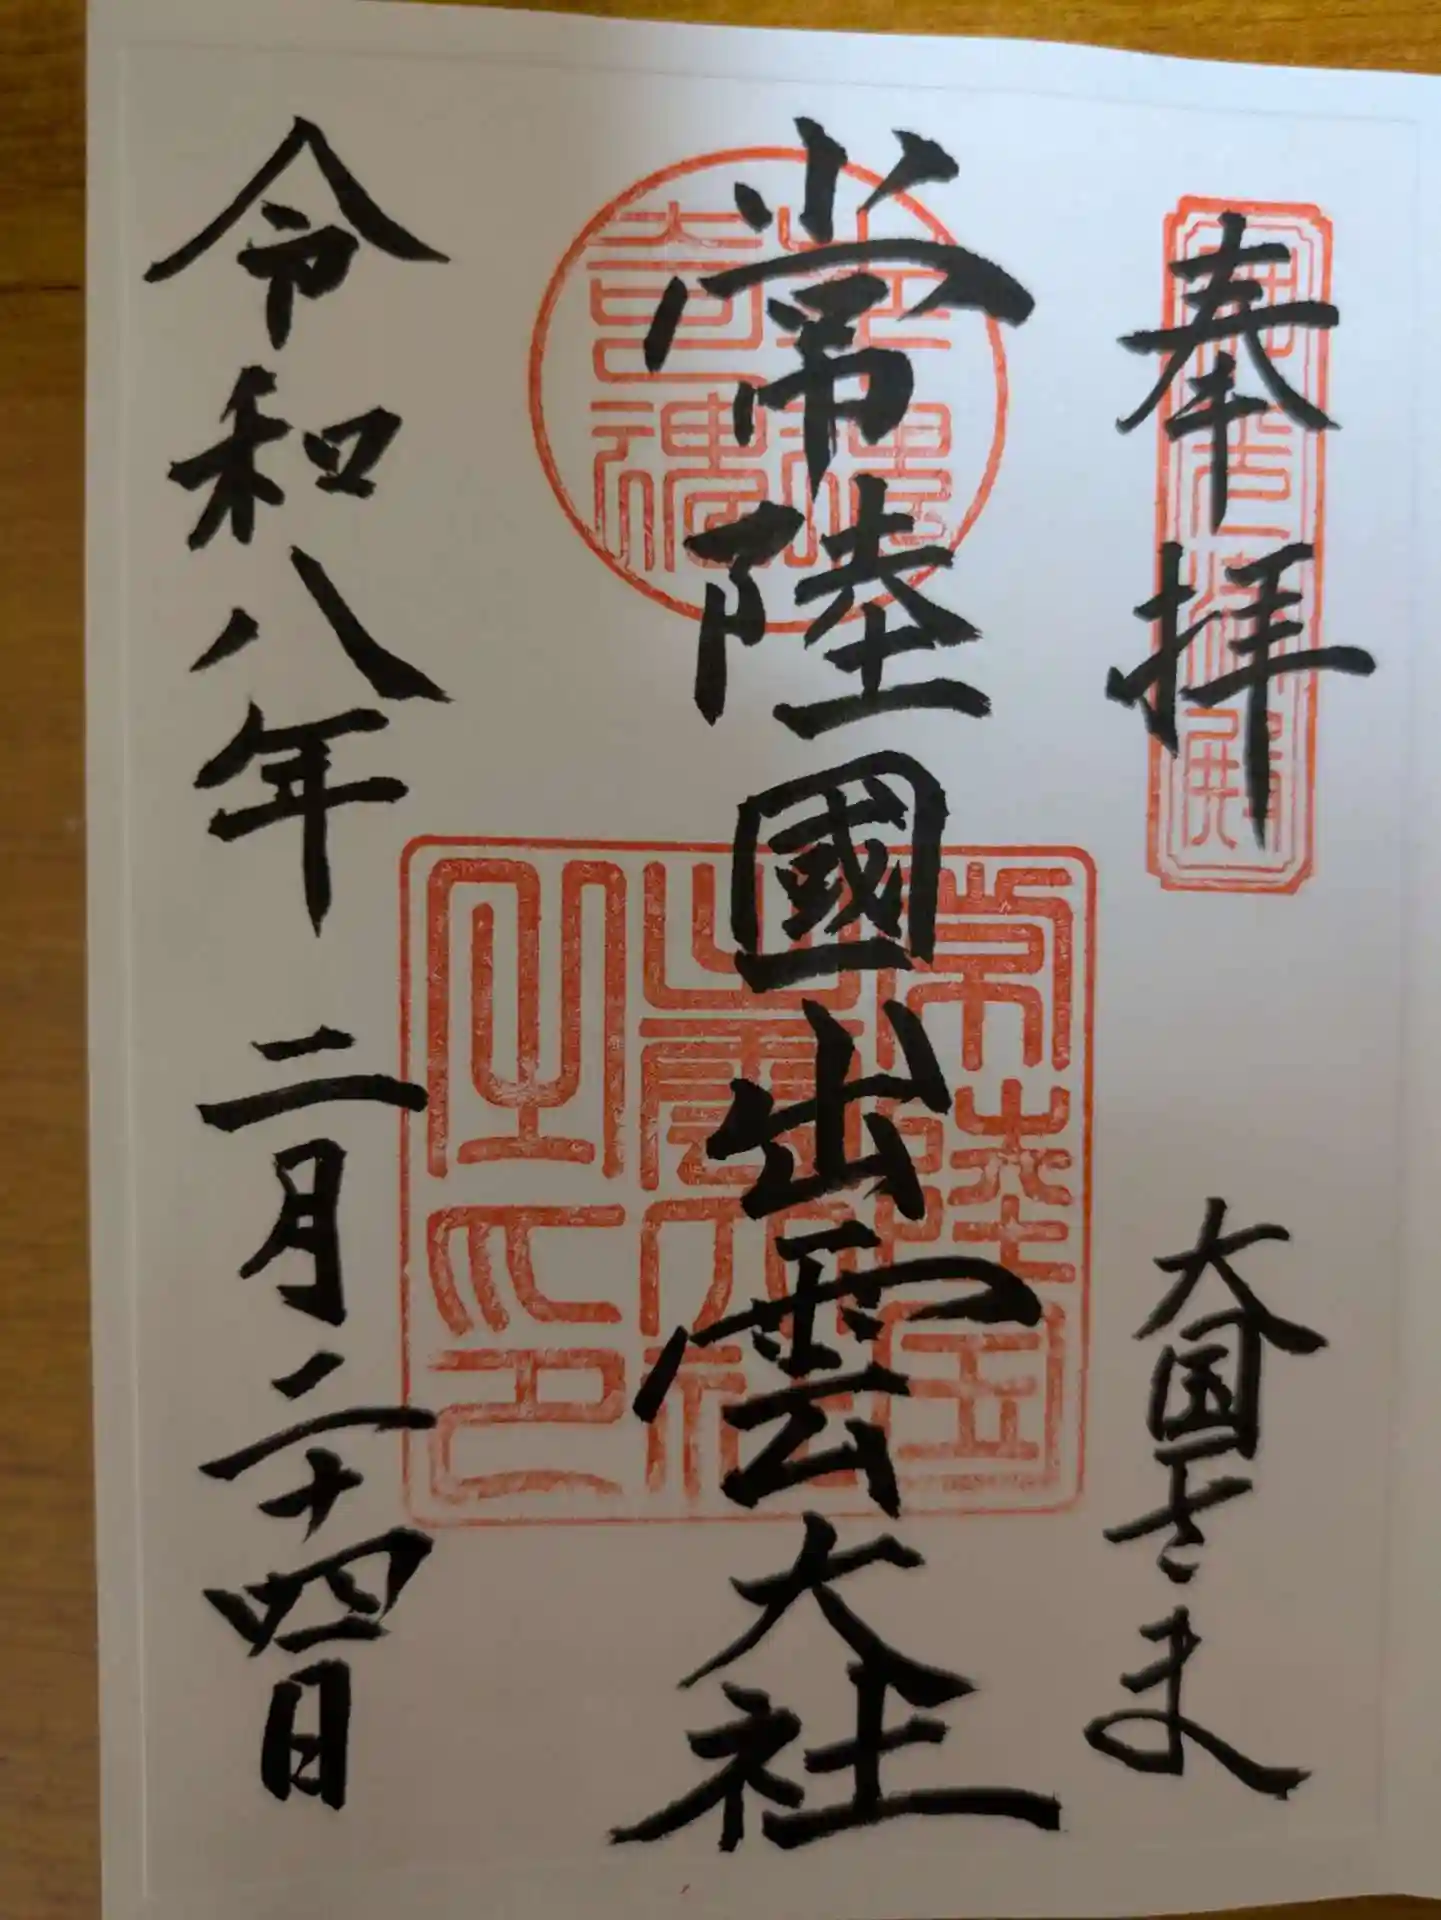 奉拝
大国さま
常陸國出雲大社
常陸国
出雲大社
之印
令和八年 二月二十四日